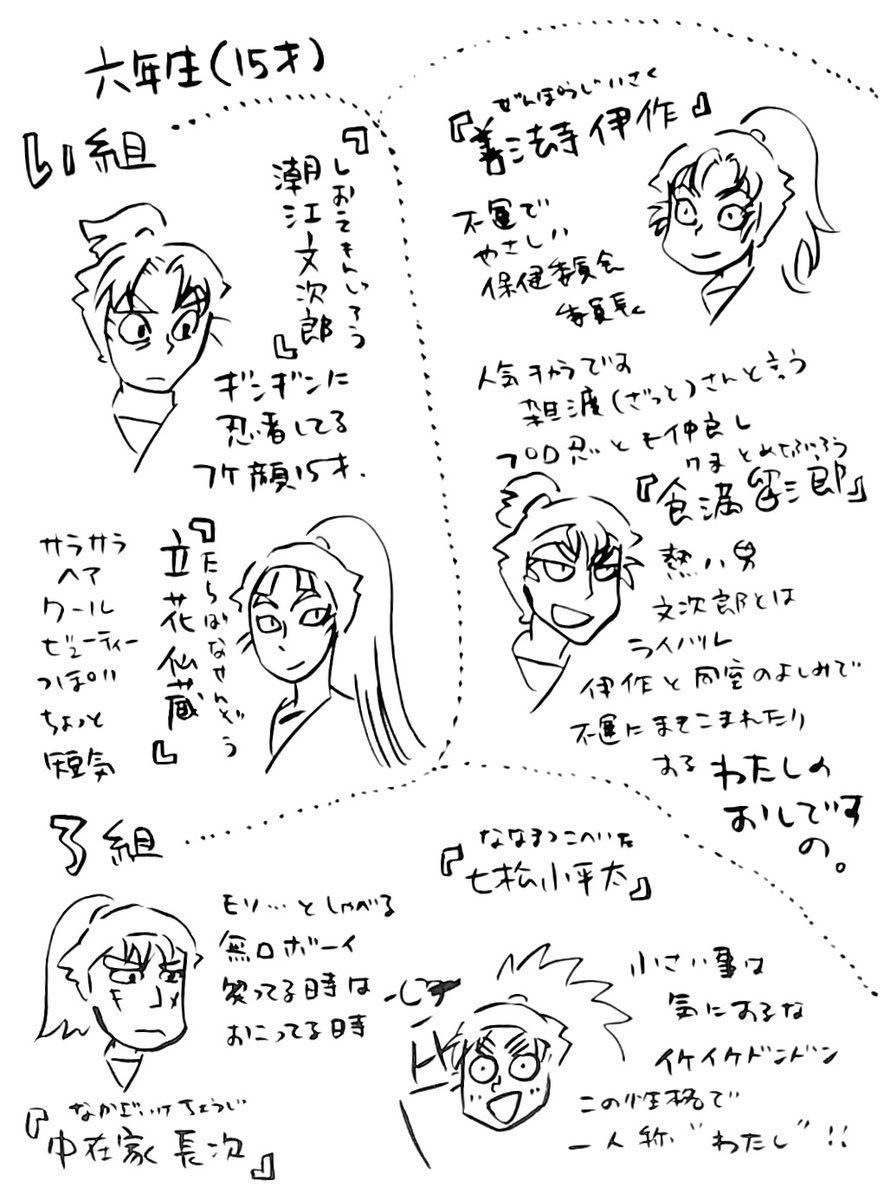 六年生(15才)
い組
『潮江文次郎』
しおえもんじろう
ギンギンに
忍者してる
フケ顔15才.
『立花仙蔵』
たちばなせんぞう
サラサラ
ヘア
クール
ビューティー
っぽい
ちょっと
短気
ぜんぽうじいさく
『善法寺伊作』
不運で
やさしい
保健委員会
委員長
人気キャラです
雑渡(ざっと)さんと言う
プロ忍とも仲良し
けまとめさぶろう
『食満留三郎』
熱い男
文次郎とは
ライバル
伊作と同室のよしみで
不運にまきこまれたり
する
わたしの
おしです
の。
ろ組
モソ…としゃべる
無口ボーイ
笑ってる時は
おこってる時
なかざいけちょうじ
『中在家長次』
ななまつこへいた
『七松小平太』
小さい事は
気にするな
イケイケドンドン
この性格で
一人称"わたし"!!